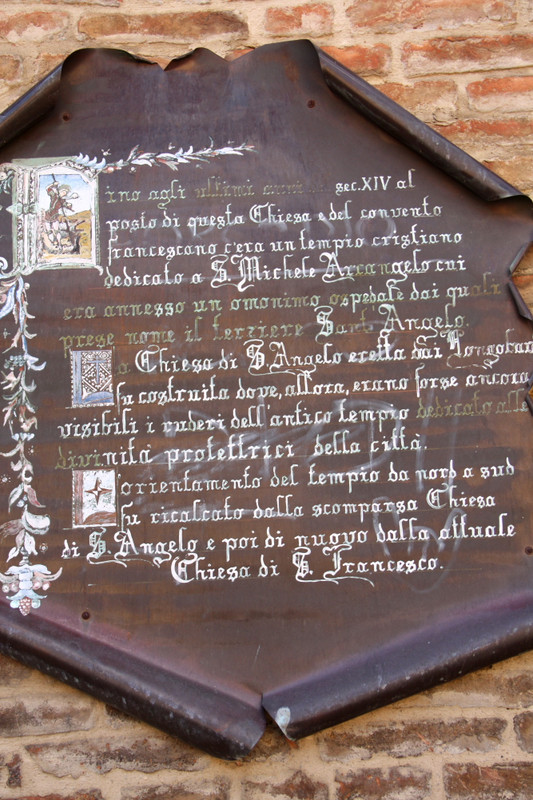 Fino agli ultimi anni.... sec.XIV al
posto di questa Chiesa e del convento
francescano c'era un tempio cristiano
dedicato a S. Michele Arcangelo cui
era annesso un omonimo ospedale dai quali
prese nome il terziere Sant' Angelo.
La Chiesa di S. Angelo eretta dai Longobar
fu costruita dove, allora, erano forse ancora
visibili i ruderi dell'antico tempio dedicato alle
divinità protettrici della città.
L'orientamento del tempio da nord a sud
fu ricalcato dalla scomparsa Chiesa
di S. Angelo e poi di nuovo dalla attuale
Chiesa di S. Francesco.